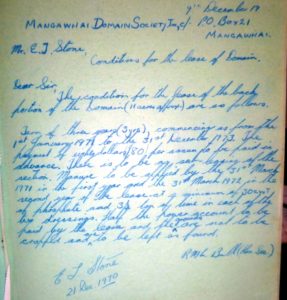 9th December 19
Mangawhai Domain Society Inc, P.O Box 21
Mangawhai.
Mr. E J. Stone.
Conditions for the lease of Domain.
Dear Sir,
The condition for the lease of the back
portion of the Domain are as follows.
Term of three years (3 yrs), commencing as from the
1st January 1971 to the 31st December 1973. The
payment of eighty dollars ($80) per annum to be paid in
advance. There is to be no sub-leasing of the
section. Manure to be applied by the 31st March
1971 in the first year and the 31st March 1972 in the
second year of the lease at a minimum of 30cwt
of phosphate and 3/4 ton of lime in each of the
two dressings. Half the power account to be
paid by the lessee and pasture not to be
cropped and to be left as found.
E J Stone
21 Dec 1970
(Hon Sec)